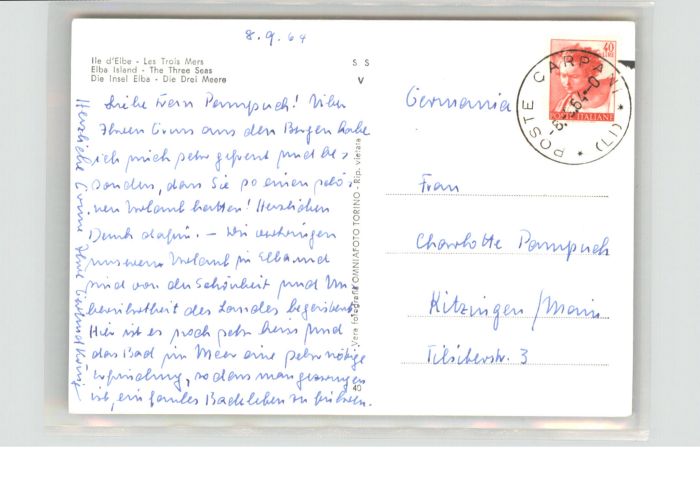 8.9.64
Ile d'Elbe - Les Trois Mers
Elba Island - The Three Seas
Die Insel Elba - Die Drei Meere
S S
V
40
LIRE
POSTE ITALIANE
POSTE CARPANI (LI)
Liebe Frau Pampuch! Über
Ihren Gruss aus den Bergen habe
ich mich sehr gefreut und be-
sonders, dass Sie so einen schö-
nen Urlaub hatten! Herzlichen
Dank dafür. – Wir verbringen
unseren Urlaub in Elba und
sind von der Schönheit und Un-
berührtheit des Landes begeistert.
Hier ist es noch sehr heiss und
das Bad im Meer eine sehr nötige
Erfrischung, so dass man gezwungen
ist, ein faules Badeleben zu führen.
Herzliche Grüsse Ihre Gertrud König
Vera fotografia OMNIAFOTO TORINO - Rip. vietata
40
Germania
Frau
Charlotte Pampuch
Kitzingen/Main
3